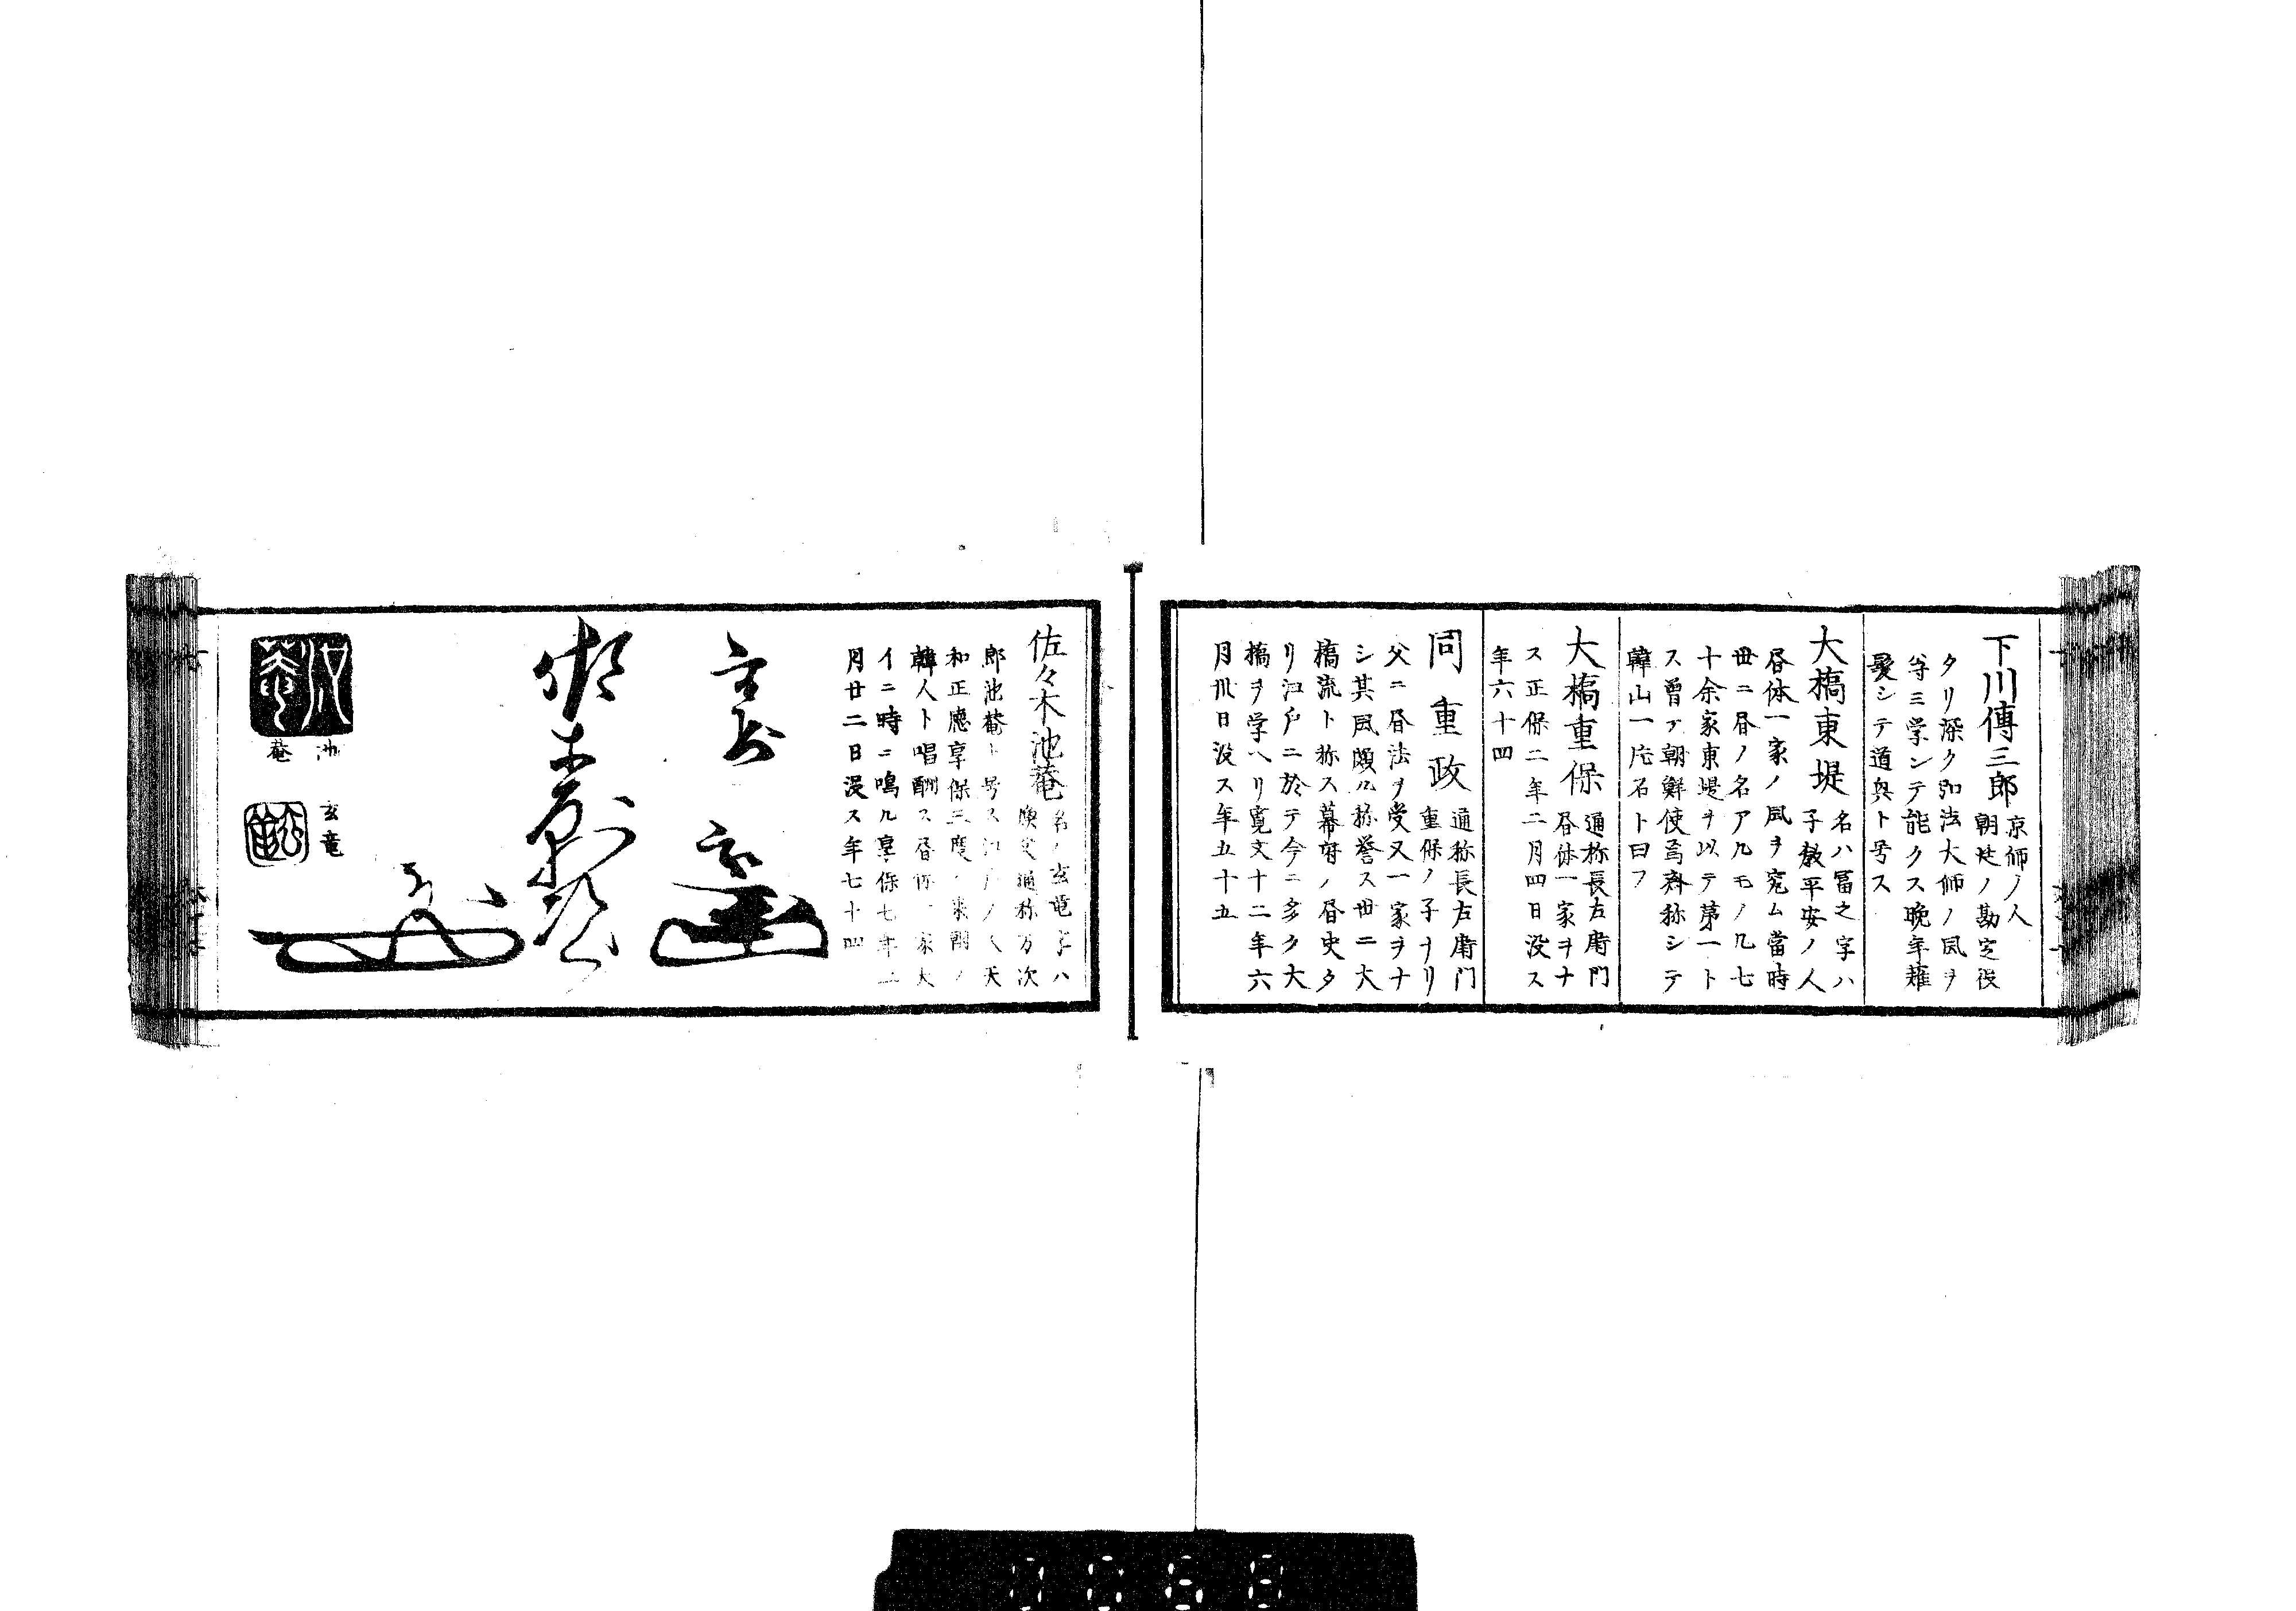 下川傳三郎 京師ノ人
朝廷ノ勘定役
タリ深ク弘法大師ノ風ヲ
等三学ンテ能クス晩年薙
髪シテ道與ト号ス
大橋東堤 名ハ冨之字ハ
子教平安ノ人
昼体一家ノ風ヲ究ム當時
世ニ昼ノ名アルモノ凡七
十余家東堤ヲ以テ第一ト
ス曽テ朝鮮使爲齊称シテ
韓山一片石ト曰フ
大橋重保 通称長左衛門
昼体一家ヲナ
ス正保二年二月四日没ス
年六十四
同重政 通称長左衛門
重保ノ子ナリ
父ニ昼法ヲ受又一家ヲナ
シ其風頗ル称誉ス世ニ大
橋流ト称ス幕府ノ昼史タ
リ江戸ニ於テ今ニ多ク大
橋ヲ学ヘリ寛文十二年六
月卅日没ス年五十五
佐々木池菴 名ハ玄竜字ハ
煥文通称万次
郎池菴ト号ス江戸ノ人天
和正應享保三度ノ来聘ノ
韓人ト唱酬ス昼体一家大
イニ時ニ鳴ル享保七年二
月廿二日没ス年七十四
池菴
玄竜